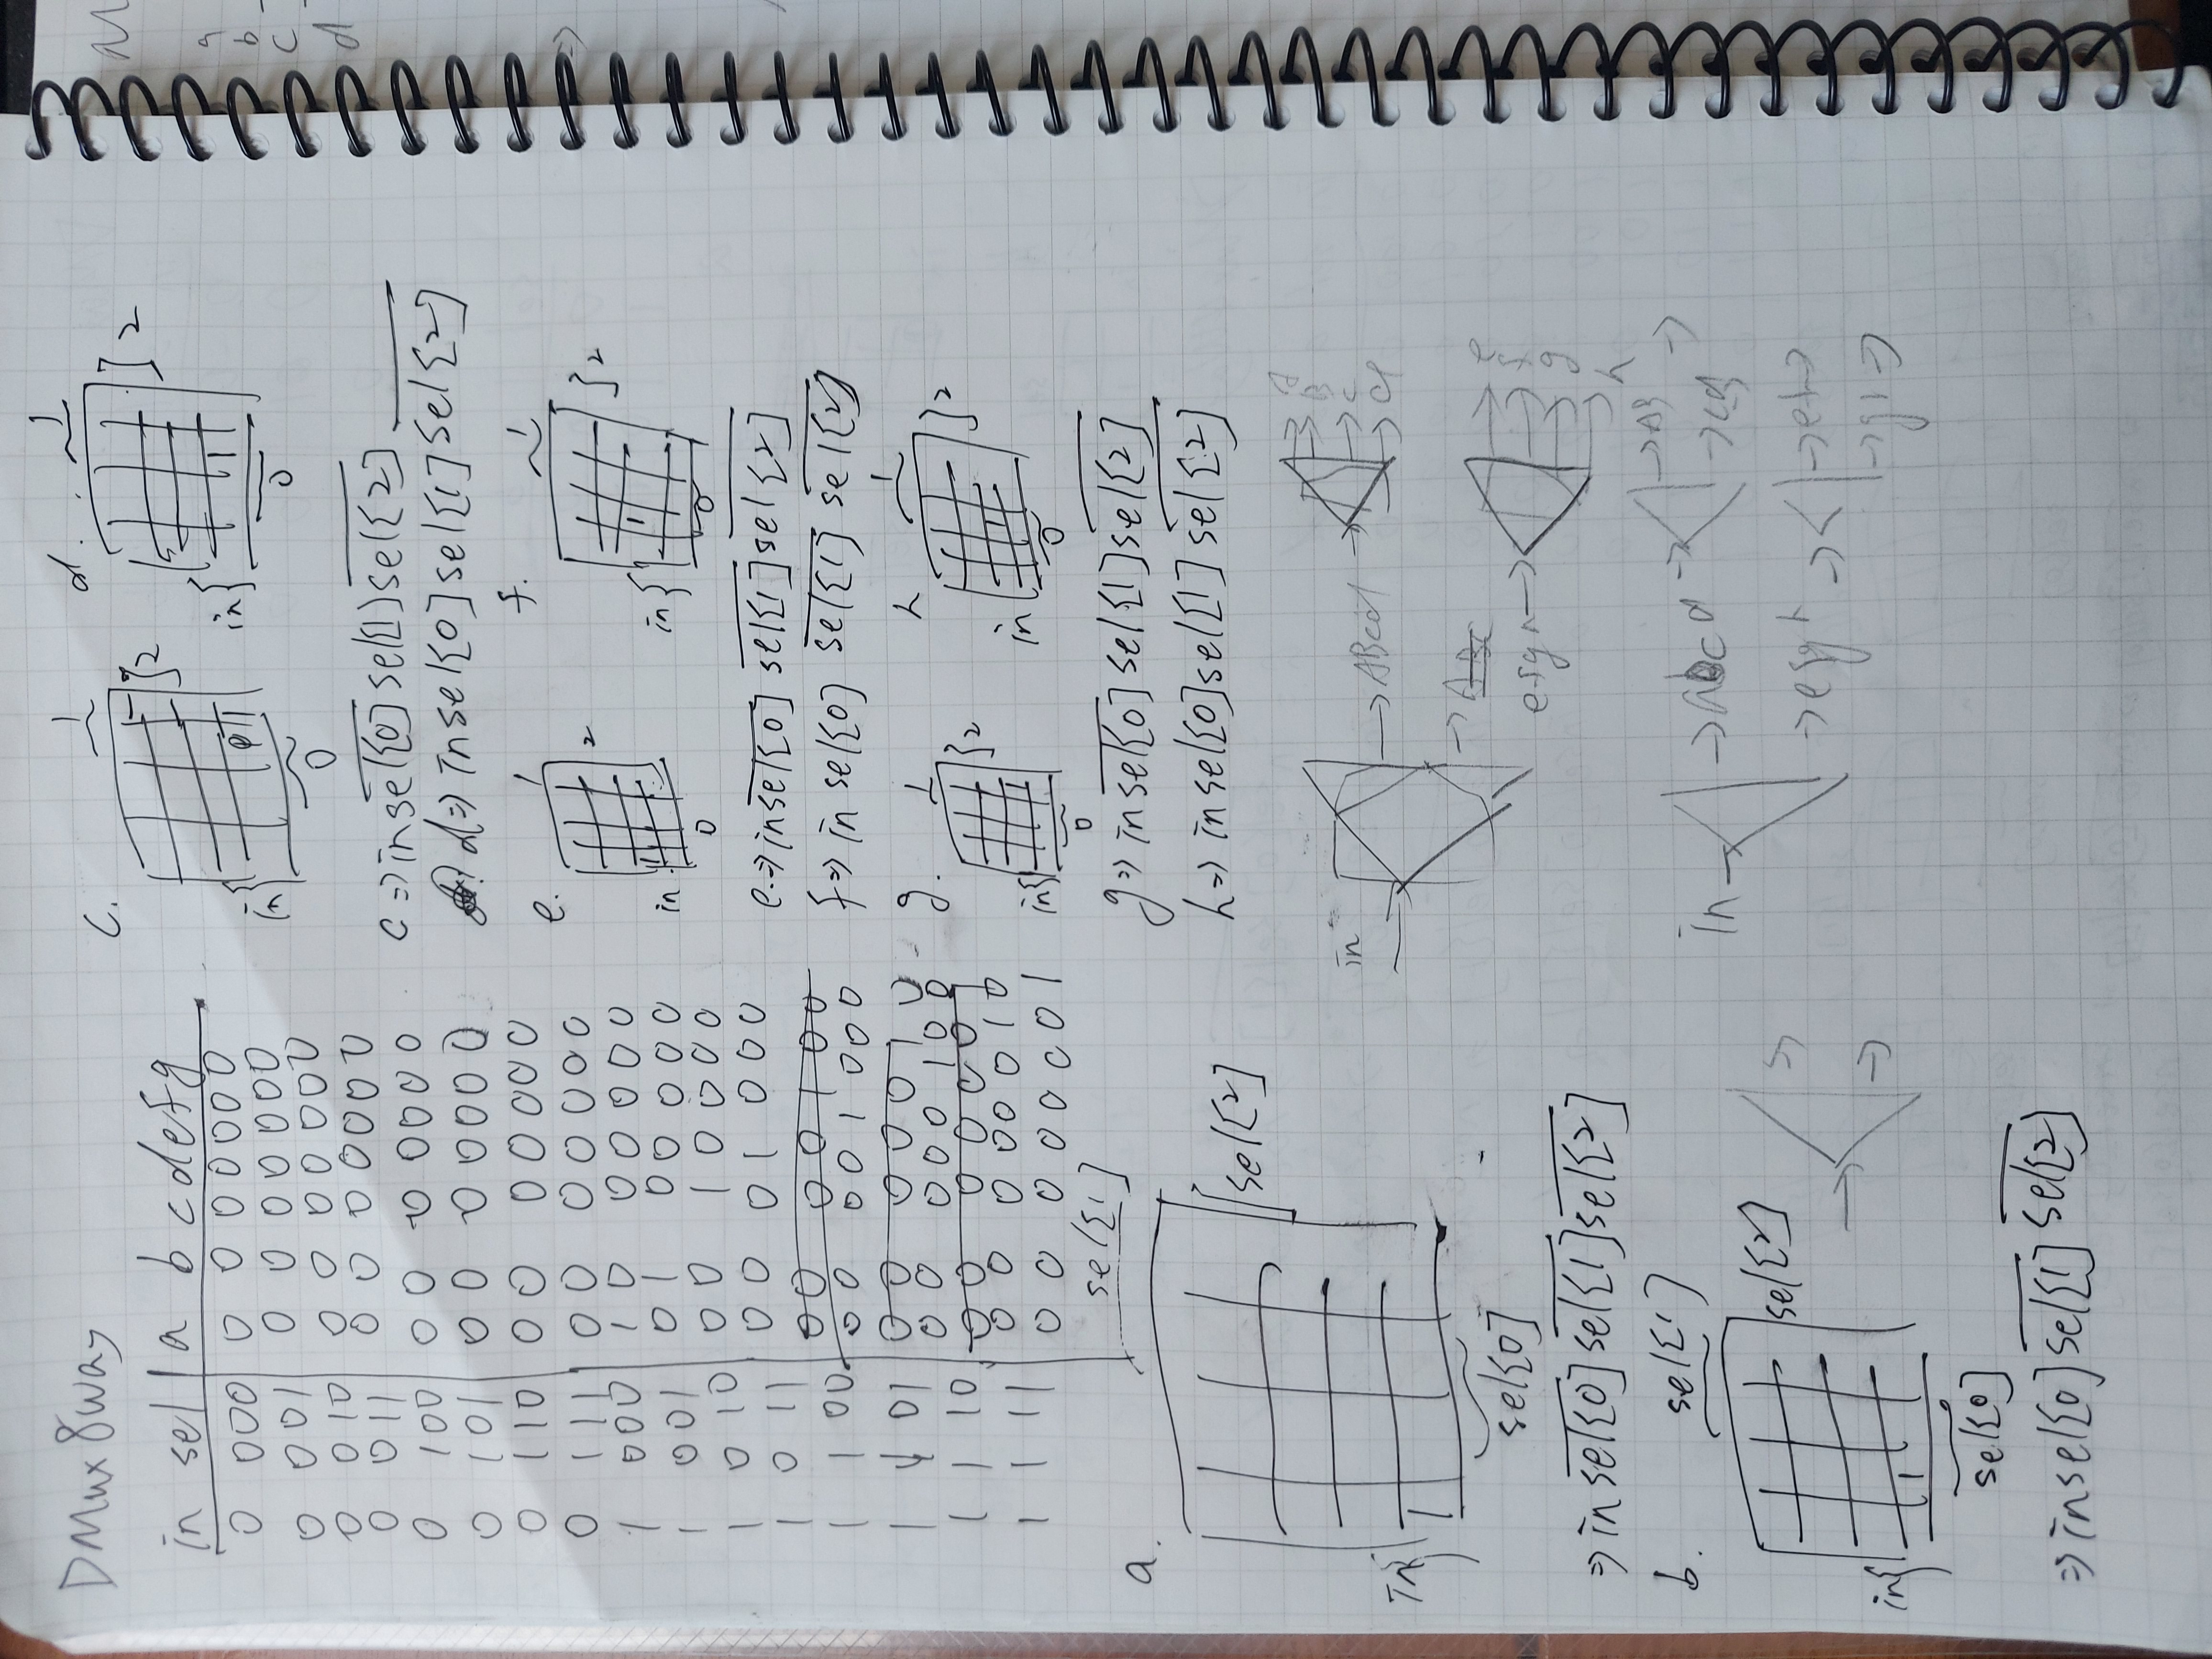 DMux8way
in sel a b c d e f g
0 000 0 0 0 0 0 0 0
0 001 0 0 0 0 0 0 0
0 010 0 0 0 0 0 0 0
0 011 0 0 0 0 0 0 0
0 100 0 0 0 0 0 0 0
0 101 0 0 0 0 0 0 0
0 110 0 0 0 0 0 0 0
0 111 0 0 0 0 0 0 0
1 000 1 0 0 0 0 0 0
1 001 0 1 0 0 0 0 0
1 010 0 0 1 0 0 0 0
1 011 0 0 0 1 0 0 0
0 0 0 0 1 0 0
1 100 0 0 0 0 1 0 0 0
0 0 0 0 0 1 0
1 101 0 0 0 0 0 1 0 0
1 110 0 0 0 0 0 0 1 0
1 111 0 0 0 0 0 0 0 1
a.
sel[1]
sel[2]
in
1
sel[0]
⇒ in s̅e̅l̅[̅0̅]̅ s̅e̅l̅[̅1̅]̅ s̅e̅l̅[̅2̅]̅
b.
sel[1]
sel[2]
in
1
sel[0]
⇒ in sel[0] s̅e̅l̅[̅1̅]̅ s̅e̅l̅[̅2̅]̅
c. 1
2
in 1
0
d. 1
2
in 1
0
c ⇒ in s̅e̅l̅[̅0̅]̅ sel[1] s̅e̅l̅[̅2̅]̅
d ⇒ in sel[0] sel[1] s̅e̅l̅[̅2̅]̅
e. 1
2
in 1
0
f. 1
2
in 1
0
e. ⇒ in s̅e̅l̅[̅0̅]̅ s̅e̅l̅[̅1̅]̅ s̅e̅l̅[̅2̅]̅
f ⇒ in sel[0] s̅e̅l̅[̅1̅]̅ s̅e̅l̅[̅2̅]̅
g. 1
2
in 1
0
h 1
2
in 1
0
g ⇒ in s̅e̅l̅[̅0̅]̅ sel[1] s̅e̅l̅[̅2̅]̅
h ⇒ in sel[0] sel[1] s̅e̅l̅[̅2̅]̅
in → ABcd
A
B
c
d
→ ABC
efgh →
e
f
g
h
in → abcd → → AB →
→ cd
→ efgh → → ef →
→ →
a
b
c
d